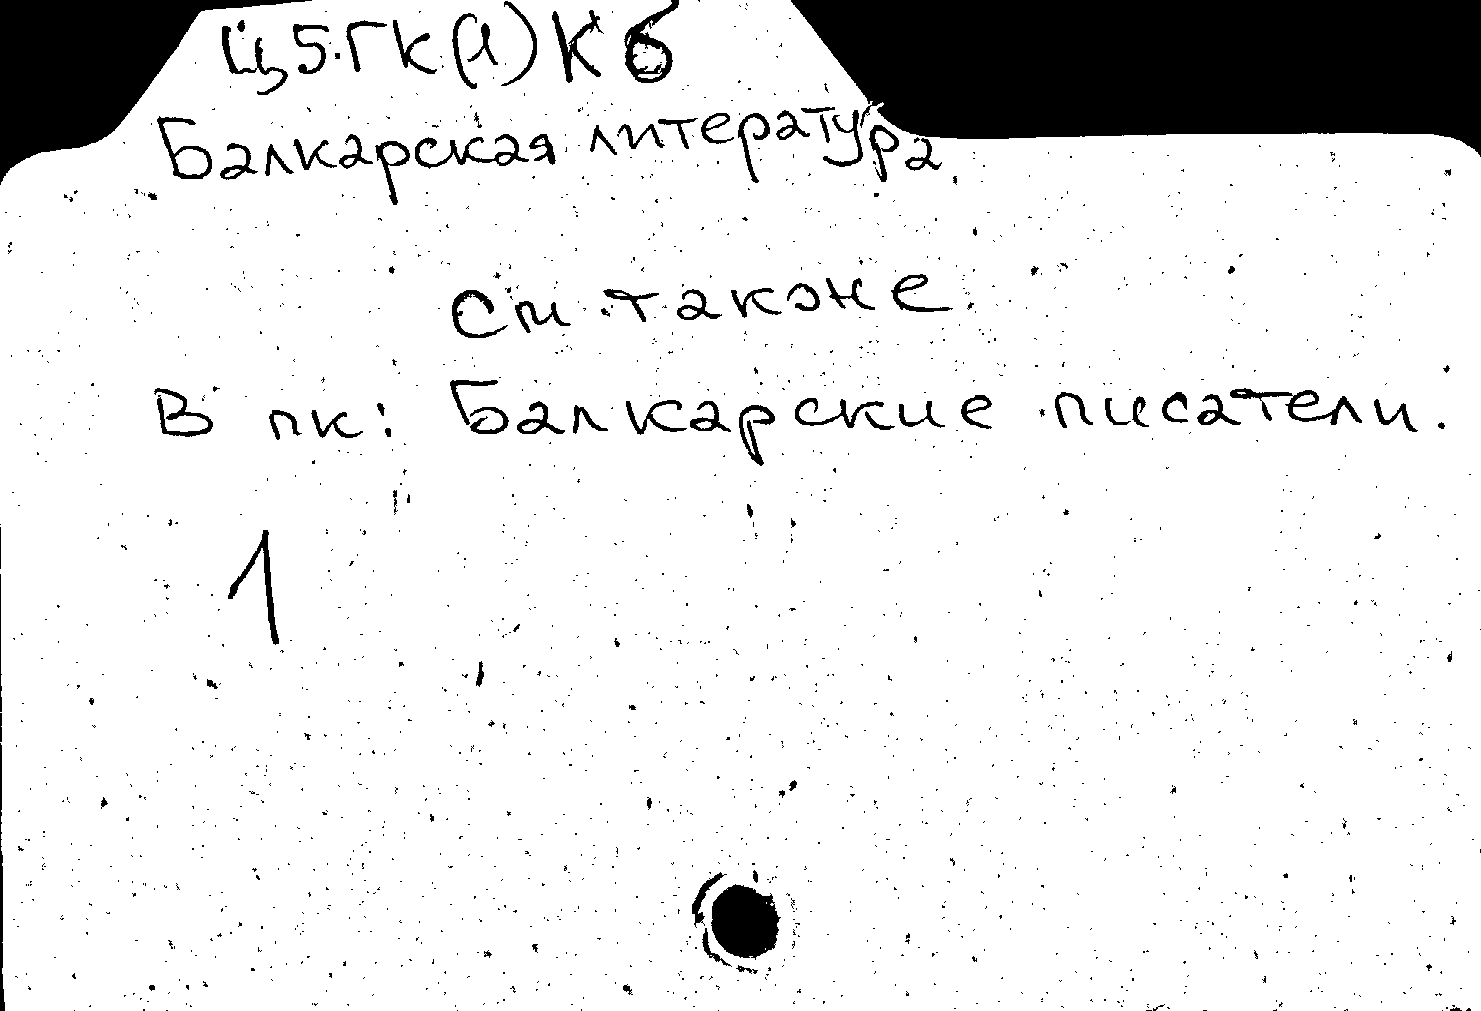 Ц5.ГК(1)Кб
Балкарская литература.
См. также
В пк: Балкарские писатели.
1